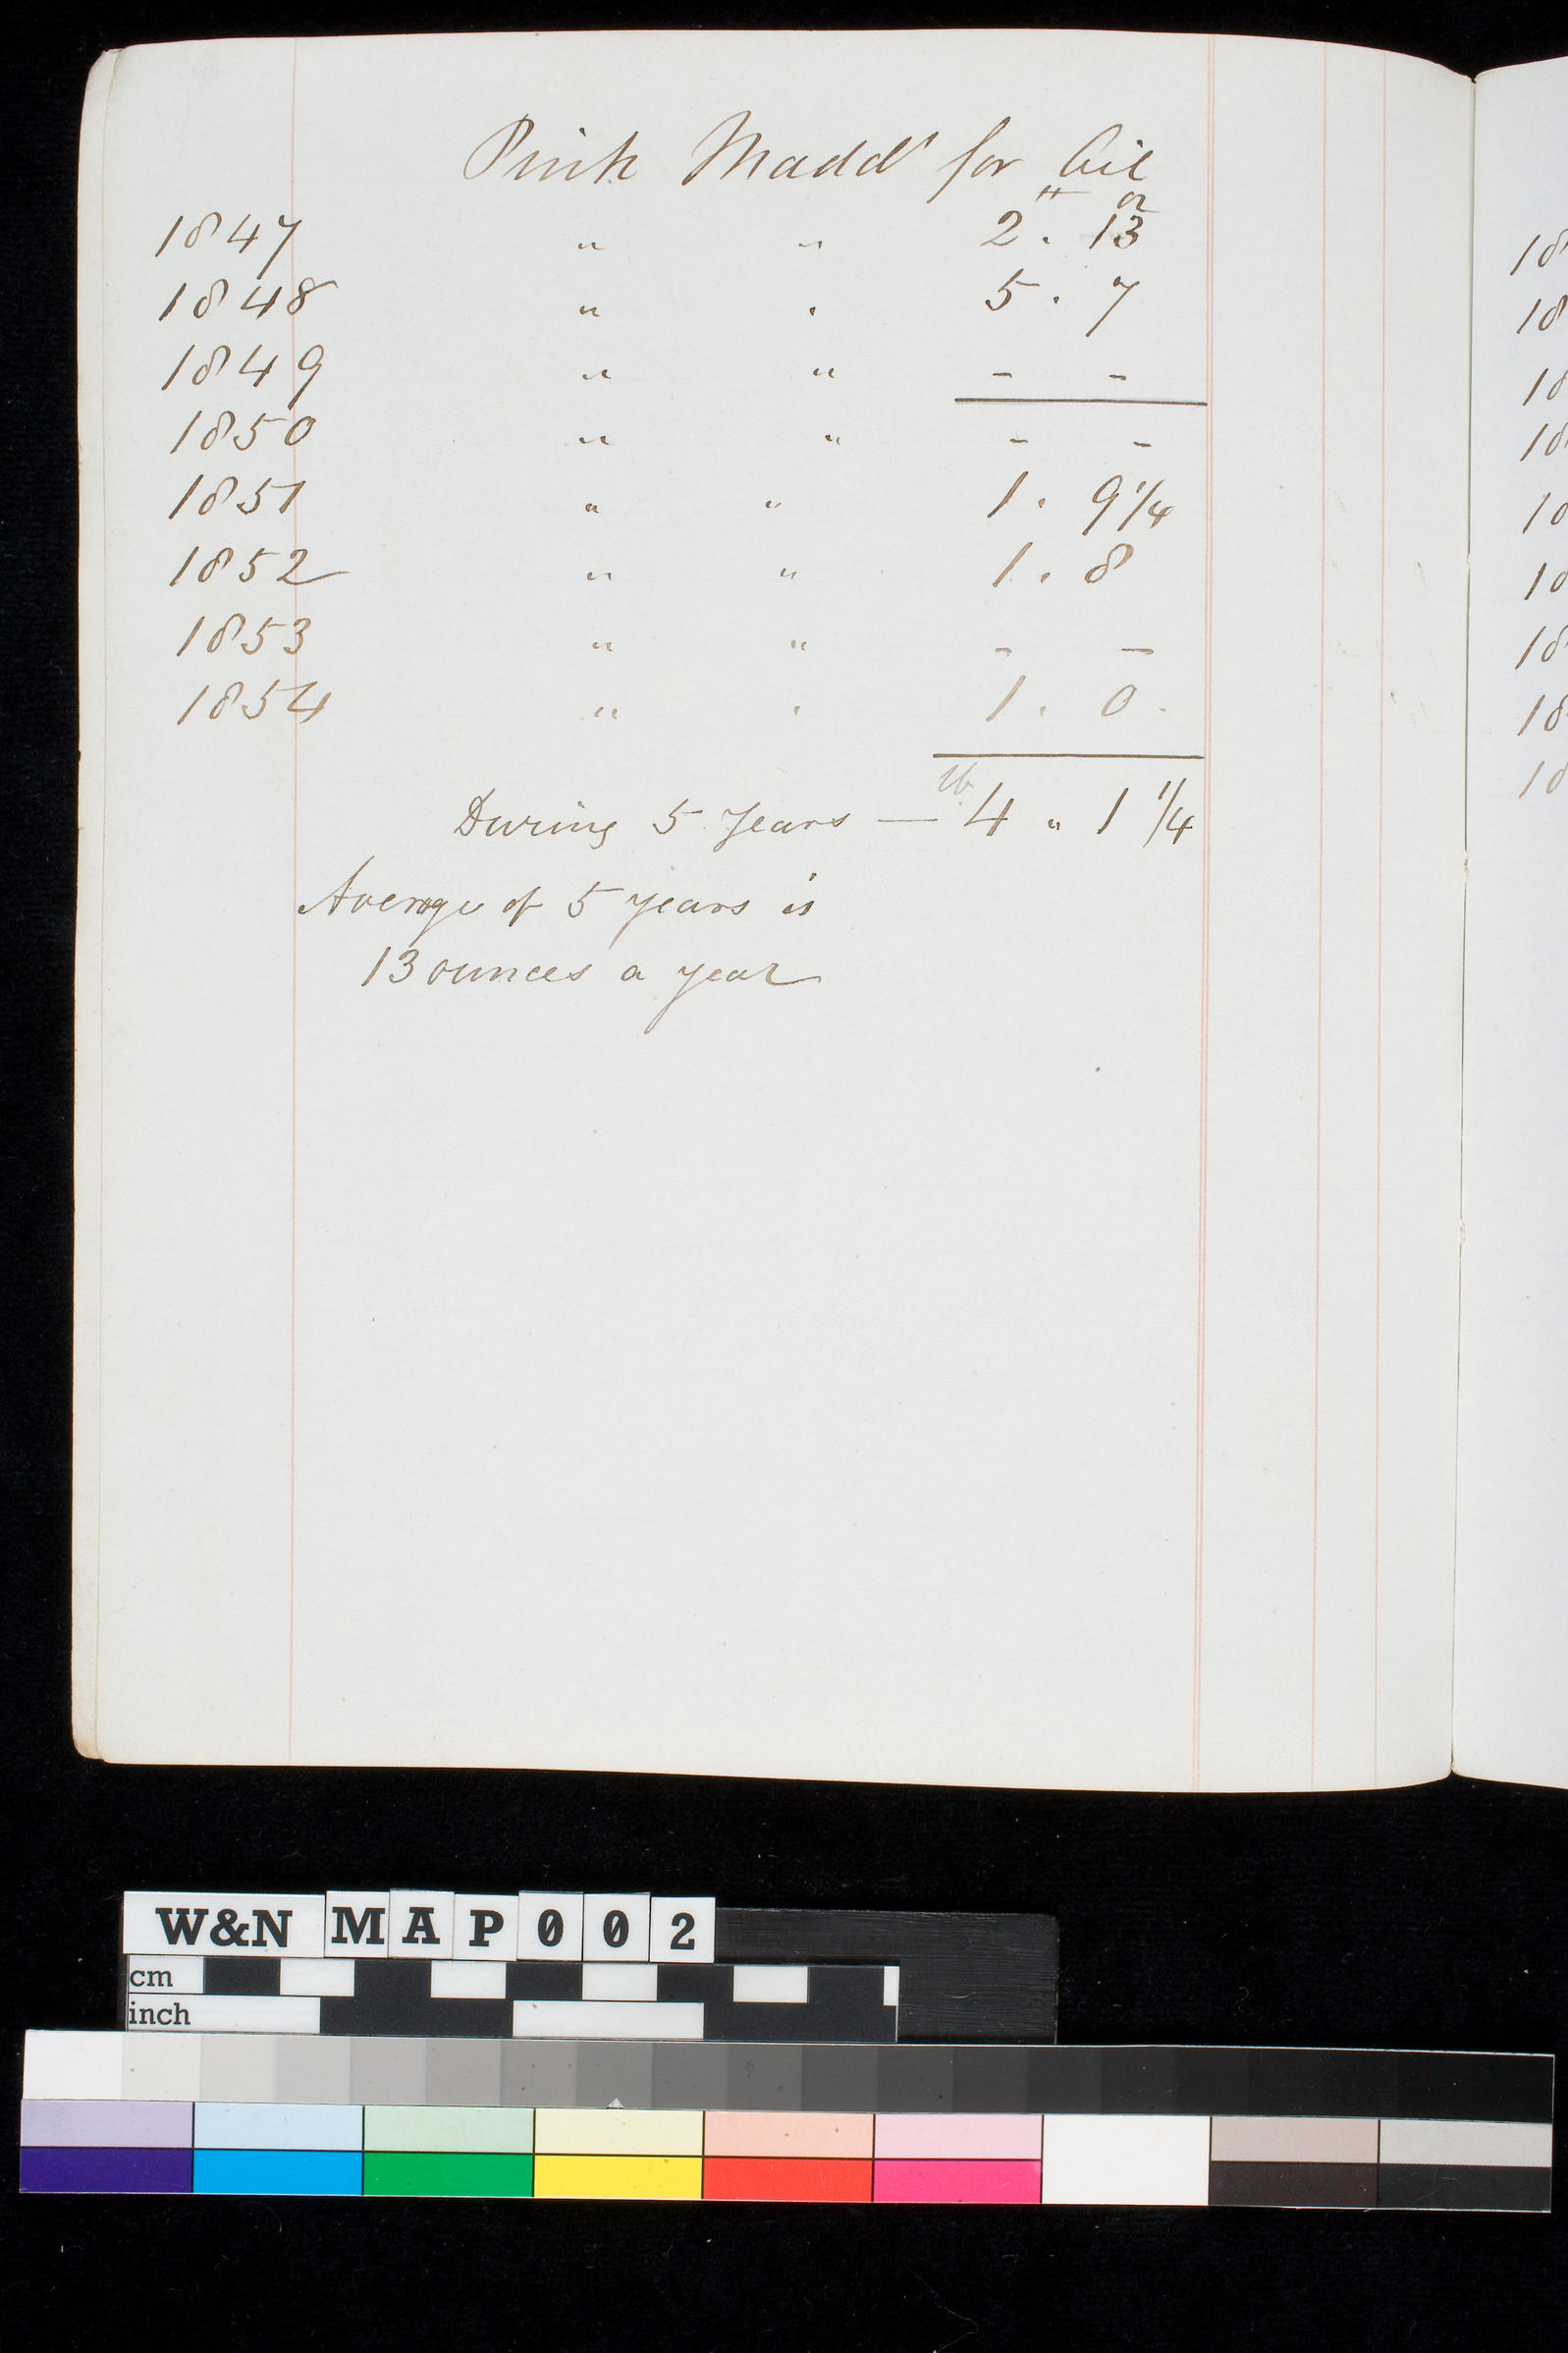 Pink Madd^r for Oil
lb oz
1847 " " 2 . 13
1848 " " 5 . 7
1849 " " - -
1850 " " - -
1851 " " 1 . 9 1/4
1852 " " 1 . 8
1853 " " - -
1854 " " 1 . 0 .
During 5 Years — lb 4 " 1 1/4
Average of 5 years is
13 ounces a year
18
18
18
18
18
18
18
18
18
W&N MAP002
cm
inch